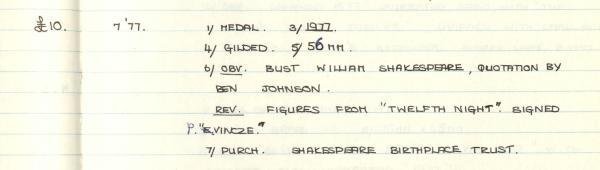 £10. 7'77. 1/ MEDAL. 3/ 1977.
4/ GILDED. 5/ 56 MM.
6/ OBV. BUST WILLIAM SHAKESPEARE, QUOTATION BY
BEN JOHNSON.
REV. FIGURES FROM "TWELFTH NIGHT". SIGNED
P. "E.VINCZE."
7/ PURCH. SHAKESPEARE BIRTHPLACE TRUST.